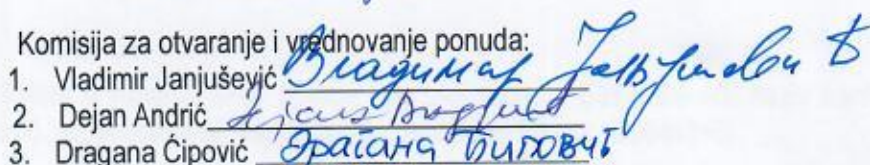 Komisija za otvaranje i vrednovanje ponuda:
1. Vladimir Janjušević Владимир
2. Dejan Andrić
3. Dragana Ćipović Драгана Ћиповић